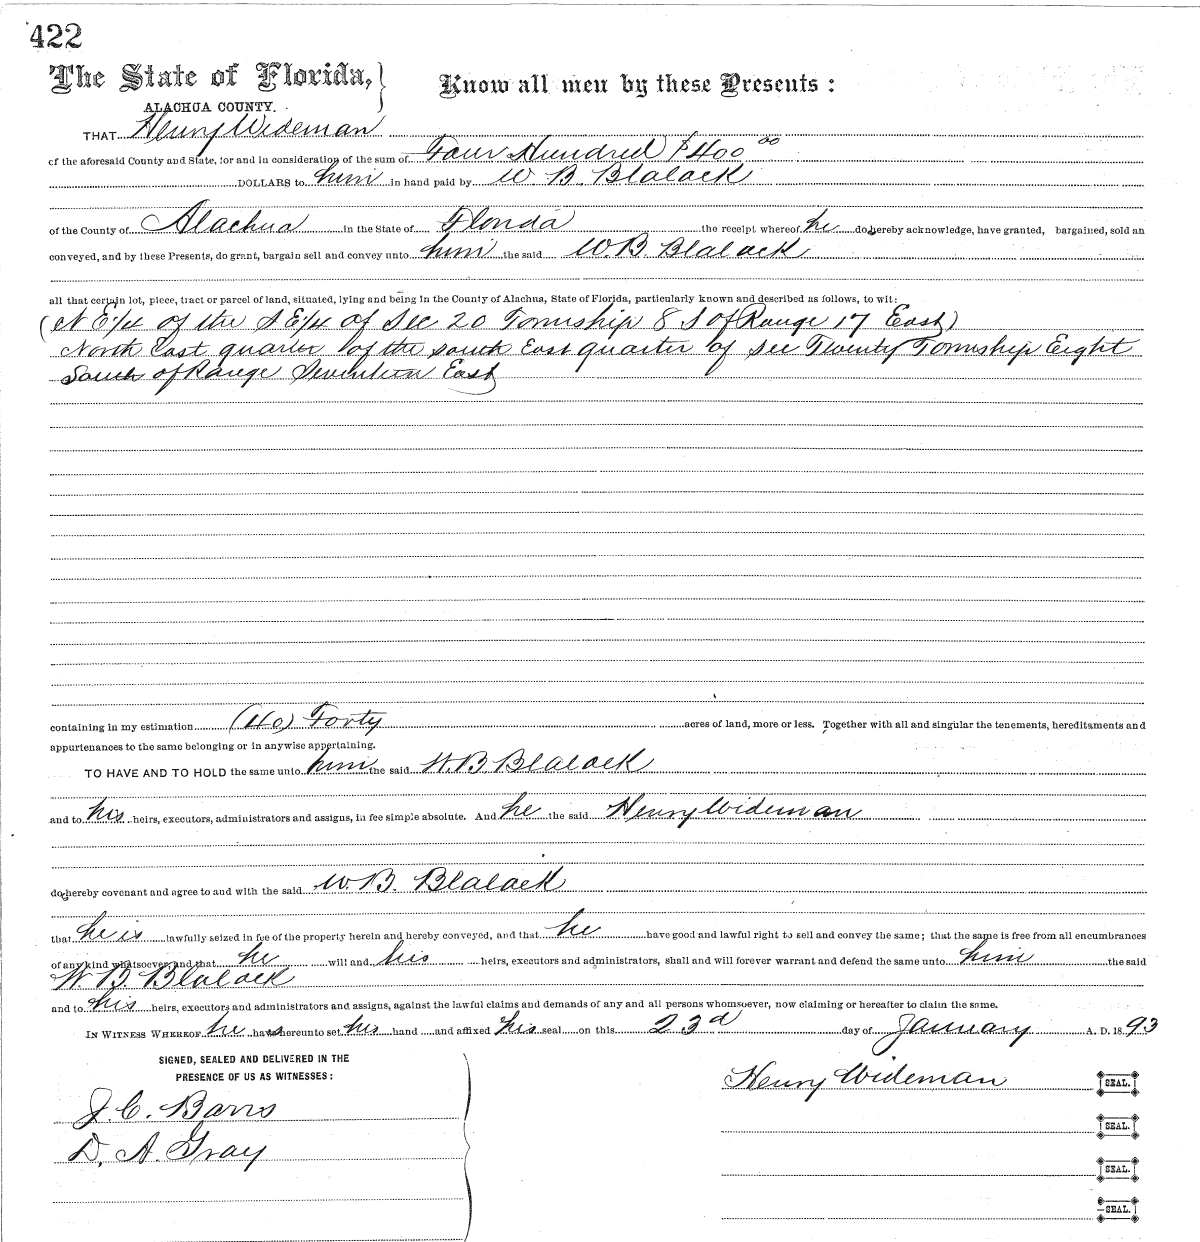 422
The State of Florida,
ALACHUA COUNTY.
Know all men by these Presents:
THAT Henry Wideman
of the aforesaid County and State, for and in consideration of the sum of Four Hundred $400 00
DOLLARS to him in hand paid by W. B. Blalack
of the County of Alachua in the State of Florida the receipt whereof he do hereby acknowledge, have granted, bargained, sold an
conveyed, and by these Presents, do grant, bargain sell and convey unto him the said W. B. Blalack
all that certain lot, piece, tract or parcel of land, situated, lying and being in the County of Alachua, State of Florida, particularly known and described as follows, to wit:
(N E 1/4 of the S E 1/4 of Sec 20 Township 8 S of Range 17 East)
North East quarter of the south East quarter of sec Twenty Township Eight
South of Range Seventeen East
containing in my estimation (40) Forty acres of land, more or less. Together with all and singular the tenements, hereditaments and
appurtenances to the same belonging or in anywise appertaining.
TO HAVE AND TO HOLD the same unto him the said W. B. Blalack
and to his heirs, executors, administrators and assigns, in fee simple absolute. And he the said Henry Wideman
do hereby covenant and agree to and with the said W. B. Blalack
that he is lawfully seized in fee of the property herein and hereby conveyed, and that he have good and lawful right to sell and convey the same; that the same is free from all encumbrances
of any kind whatsoever, and that he will and his heirs, executors and administrators, shall and will forever warrant and defend the same unto him the said
W. B. Blalack
and to his heirs, executors and administrators and assigns, against the lawful claims and demands of any and all persons whomsoever, now claiming or hereafter to claim the same.
IN WITNESS WHEREOF he has hereunto set his hand and affixed his seal on this 23d day of January A. D. 1893
SIGNED, SEALED AND DELIVERED IN THE
PRESENCE OF US AS WITNESSES:
J. C. Barrs
D. A. Gray
Henry Wideman SEAL.
SEAL.
SEAL.
SEAL.